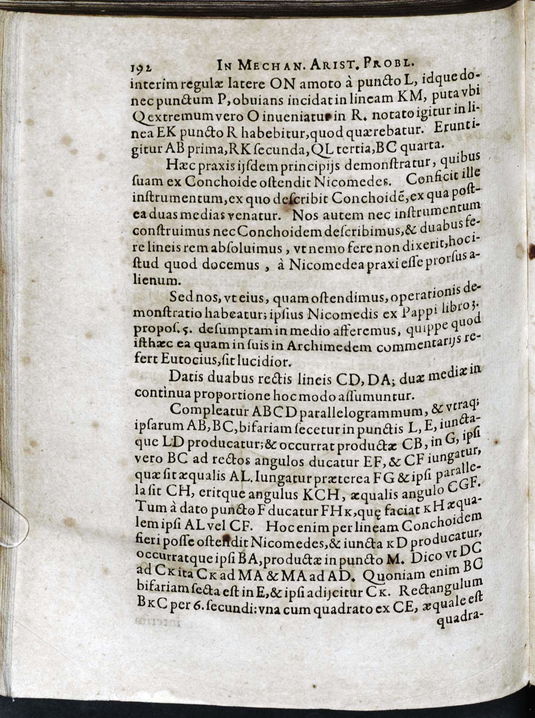 192 IN MECHAN. ARIST. PROBL.
interim regulæ latere ON amoto à puncto L, idque do-
nec punctum P, obuians incidat in lineam KM, puta vbi
Q extremum vero O inueniatur in R. notato igitur in li-
nea EK puncto R habebitur, quod quærebatur. Erunt i-
gitur AB prima, RK secunda, QL tertia, BC quarta.
Hæc praxis ijsdem principijs demonstratur, quibus
suam ex Conchoide ostendit Nicomedes. Conficit ille
instrumentum, ex quo describit Conchoidẽ, ex qua post-
ea duas medias venatur. Nos autem nec instrumentum
construimus nec Conchoidem describimus, & duabus fe-
re lineis rem absoluimus, vt nemo fere non dixerit, hoc i-
stud quod docemus, à Nicomedea praxi esse prorsus a-
lienum.
Sed nos, vt eius, quam ostendimus, operationis de-
monstratio habeatur; ipsius Nicomedis ex Pappi libro 3.
propos. 5. desumptam in medio afferemus, quippe quod
isthæc ea quam in suis in Archimedem commentarijs re-
fert Eutocius, sit lucidior.
Datis duabus rectis lineis CD, DA; duæ mediæ in
continua proportione hoc modo assumuntur.
Compleatur ABCD parallelogrammum, & vtraq;
ipsarum AB, BC, bifariam secetur in punctis L, E, iuncta-
que LD producatur; & occurrat productæ CB, in G, ipsi
vero BC ad rectos angulos ducatur EF, & CF iungatur,
quæ sit æqualis AL. Iungatur præterea FG & ipsi paralle-
la sit CH, eritque angulus KCH, æqualis angulo CGF.
Tum à dato puncto F ducatur FHK, quę faciat KH æqua-
lem ipsi AL vel CF. Hoc enim per lineam Conchoidem
fieri posse ostendit Nicomedes, & iuncta KD producatur,
occurratque ipsi BA, productæ in puncto M. Dico vt DC
ad CK ita CK ad MA & MA ad AD. Quoniam enim BC
bifariam secta est in E, & ipsi adijcitur CK. Rectangulum
BKC per 6. secundi: vna cum quadrato ex CE, æquale est
quadra-